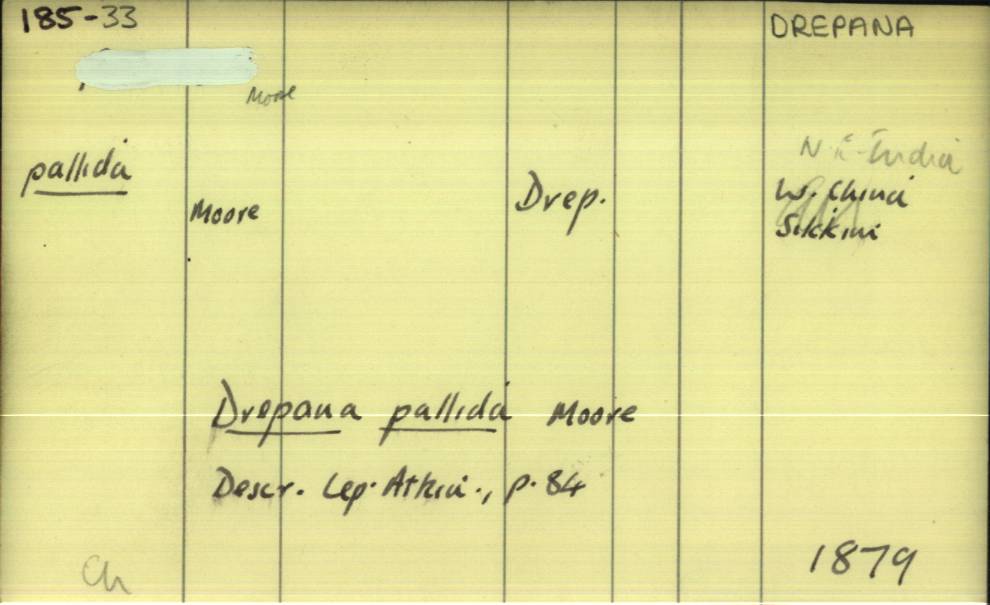 185-33
DREPANA
Moore
pallida
Moore
Drep.
N.E. India
W. China
Sikkim
Drepana pallida Moore
Descr. Lep. Atkin., p. 84
Ch
1879